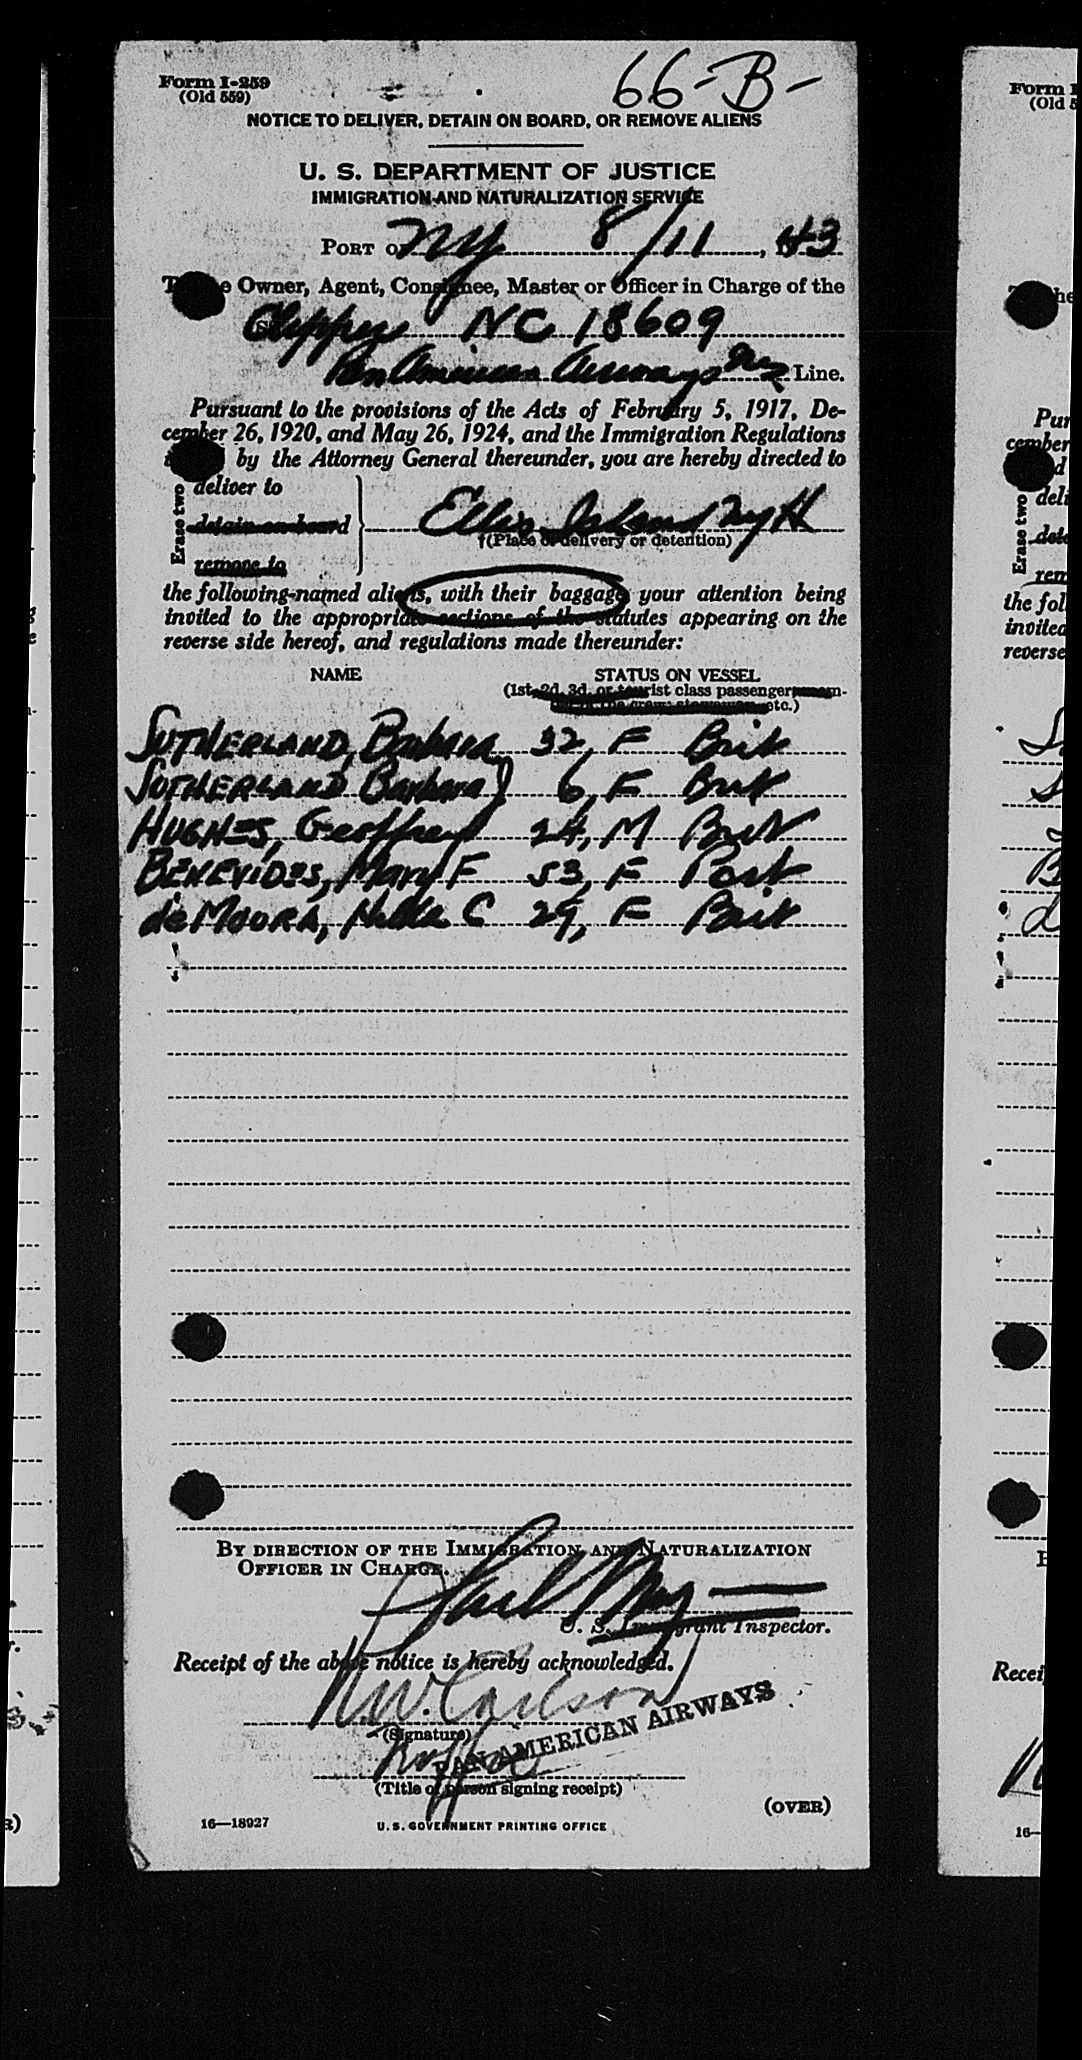 Form I-259
(Old 559)
66-B-
NOTICE TO DELIVER, DETAIN ON BOARD, OR REMOVE ALIENS
U. S. DEPARTMENT OF JUSTICE
IMMIGRATION AND NATURALIZATION SERVICE
PORT OF NY 8/11, 43
Owner, Agent, Consignee, Master or Officer in Charge of the
Clipper NC 18609
Pan American Airways Inc Line.
Pursuant to the provisions of the Acts of February 5, 1917, De-
cember 26, 1920, and May 26, 1924, and the Immigration Regulations
by the Attorney General thereunder, you are hereby directed to
Erase two
deliver to
detain on board
remove to
Ellis Island NYH
†(Place of delivery or detention)
the following-named aliens, with their baggage, your attention being
invited to the appropriate sections of the statutes appearing on the
reverse side hereof, and regulations made thereunder:
NAME STATUS ON VESSEL
(1st, 2d, 3d, or tourist class passenger, mem-
ber of the crew, stowaway, etc.)
SUTHERLAND, Barbara 32, F Brit
SUTHERLAND Barbara J 6, F Brit
HUGHES, Geoffrey 24, M Brit
BENEVIDES, Mary F 53, F Port
de MOURA, C 29, F Brit
BY DIRECTION OF THE IMMIGRATION AND NATURALIZATION
OFFICER IN CHARGE.
U. S. Immigrant Inspector.
Receipt of the above notice is hereby acknowledged.
N.W. Carlson
(Signature)
PAN AMERICAN AIRWAYS
(Title of person signing receipt)
(OVER)
16—18927
U. S. GOVERNMENT PRINTING OFFICE
Form
(Old
Pur
cember
Erase two
the fol
invited
reverse
Recei
16—